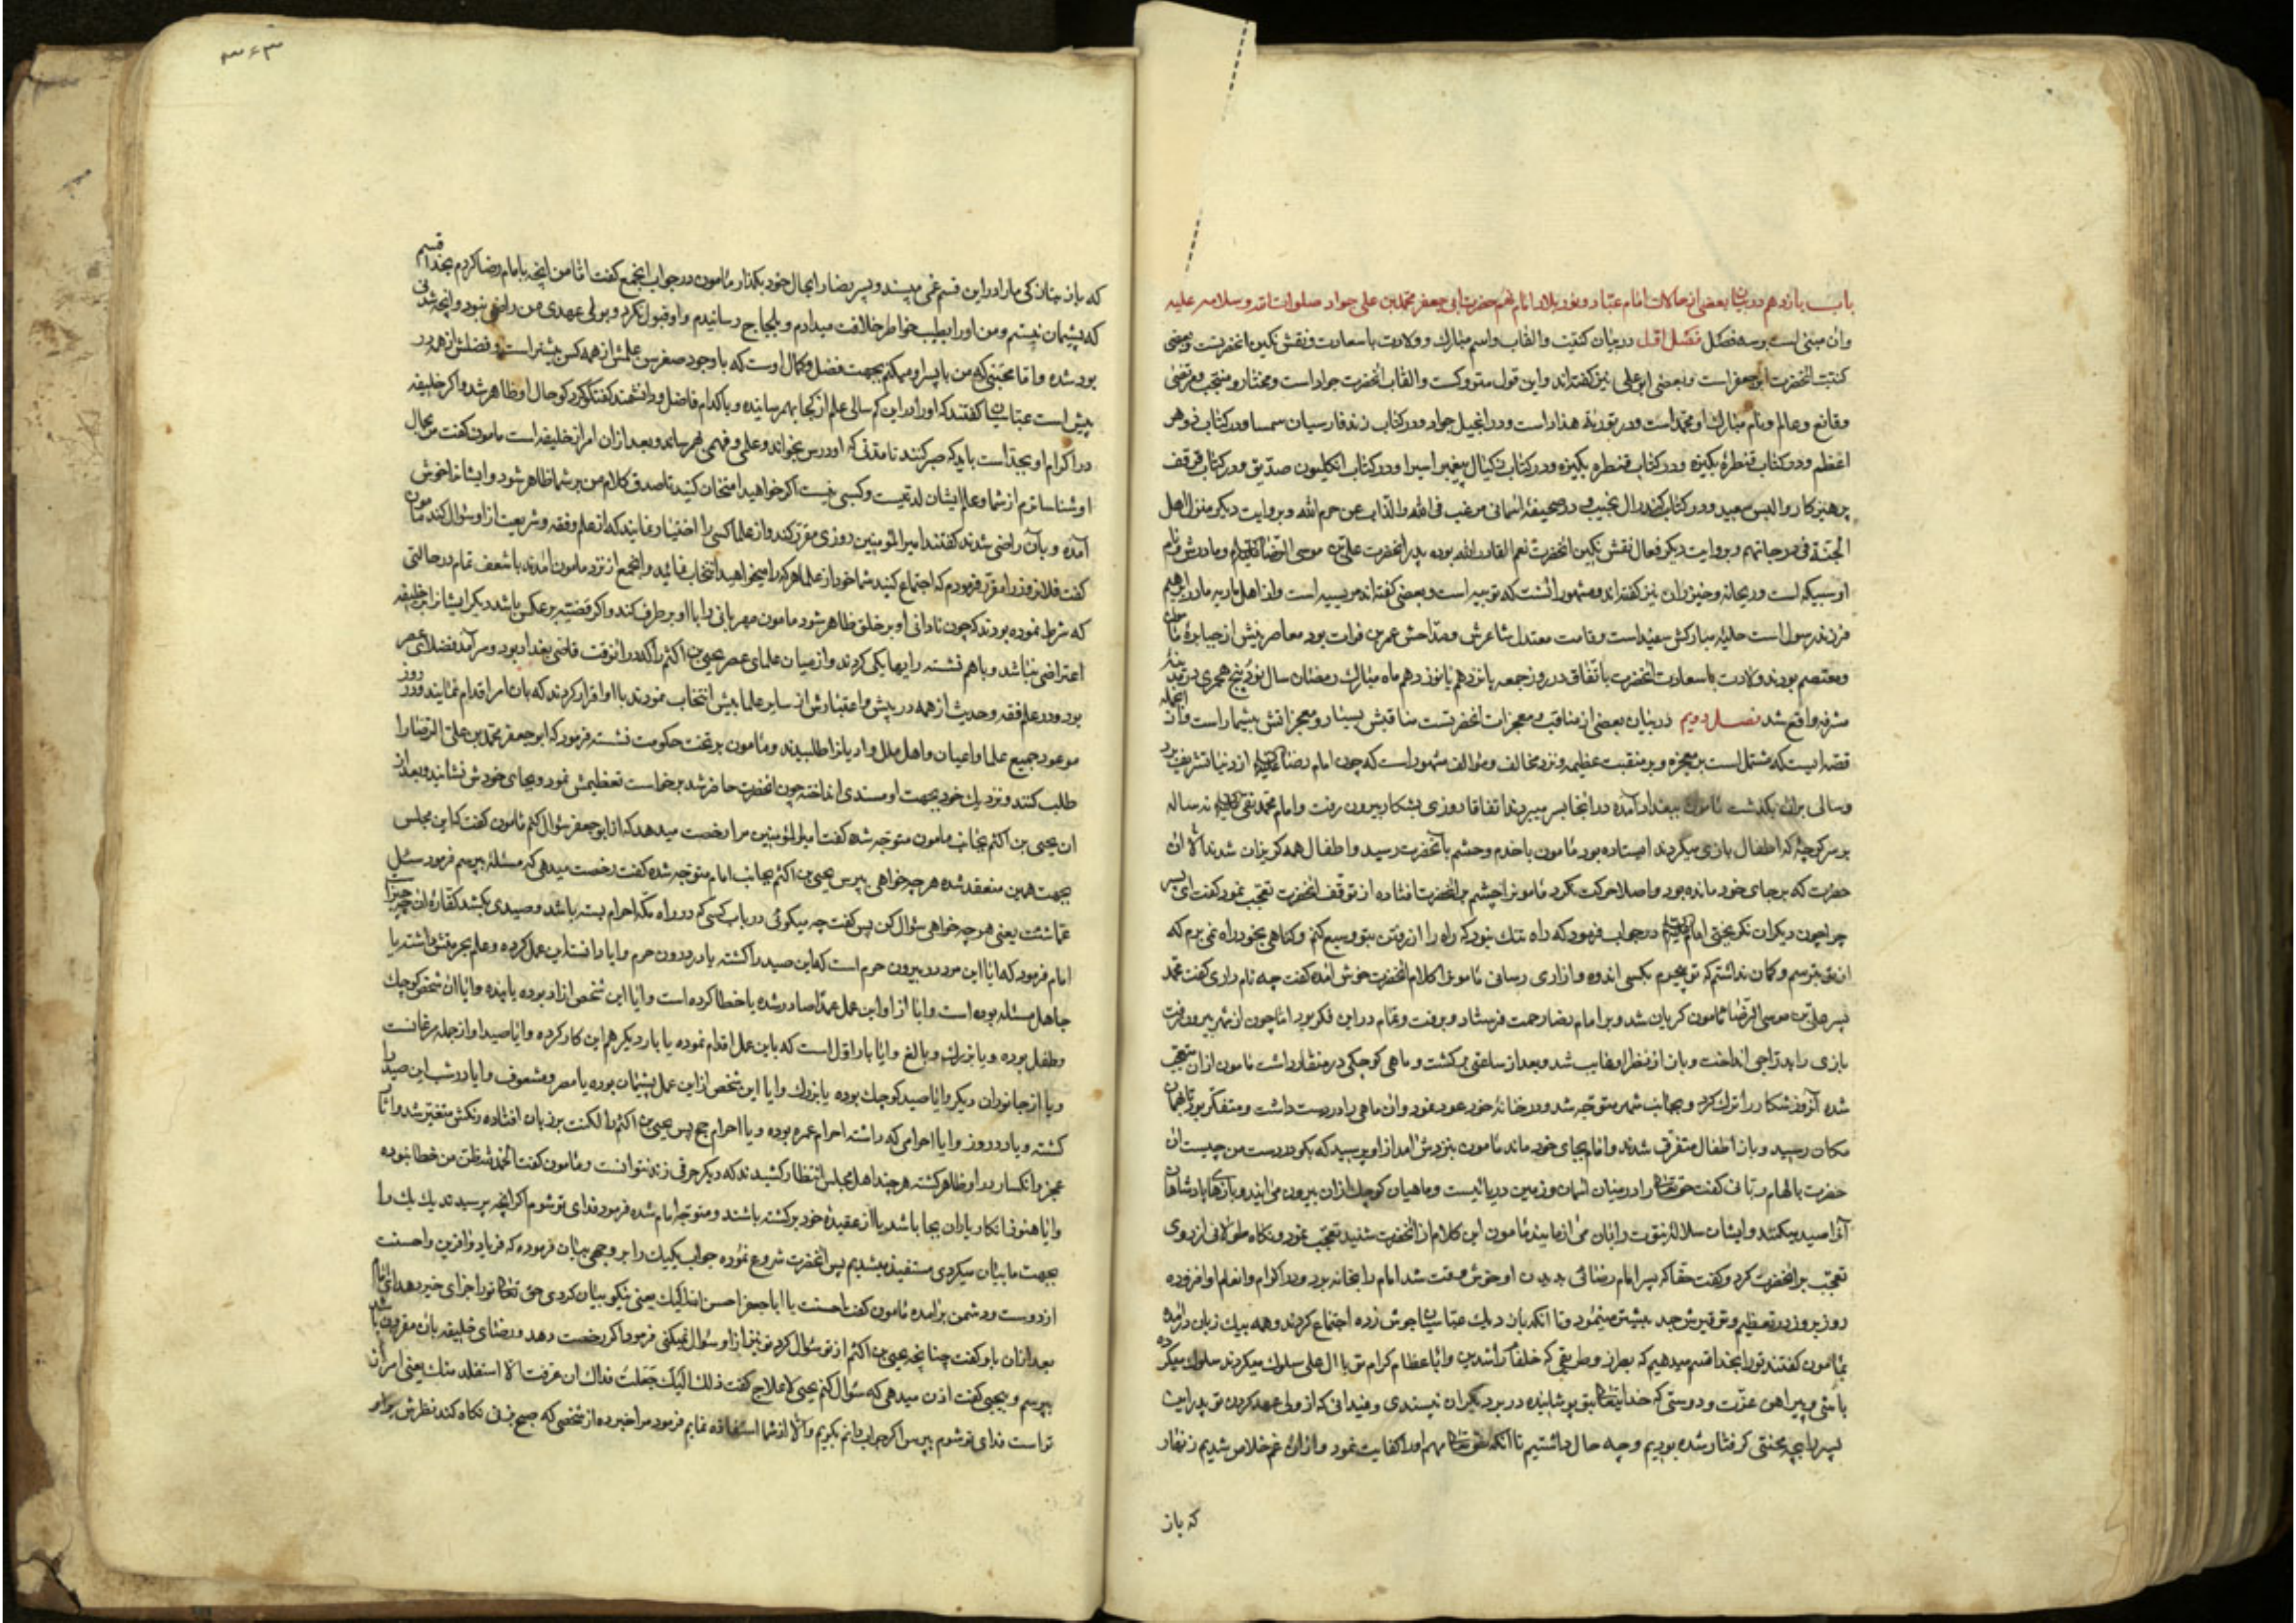 باب یازدهم در بیان بعضی از حالات امام عباد و نور بلاد امام نهم حضرت ابی جعفر محمد بن علی جواد صلوات الله و سلامه علیه
وان مبنی است بر سه فصل فصل اول در بیان کنیت والقاب واسم مبارك و ولادت باسعادت ونقش نکین انحضرتست
کنیت انحضرت ابو جعفر است وبعضی ابو علی نیز کفته اند واین قول متروکست والقاب انحضرت جواد است ومختار و منتجب ومرتضی
وقانع وعالم ونام مبارك او محمد است ودر توریة هذار است ودر انجیل جواد ودر کتاب زند فارسیان
اعظم ودر کتاب قنطره بکیزه ودر کتاب
پرهیزکار ودر صحیفه اسمانی مرغب فی الله والذاب عن حرم الله وبروایت دیکر منزل اهل
الجنة فی درجاتهم وبروایت دیکر نقش نکین انحضرت نعم القادر الله بوده پدر انحضرت علی بن موسی الرضا ومادرش ام
او سبیکه است وریحانه وخیزران نیز کفته اند ومشهور انست که نوبیه است وبعضی کفته اند مریسیه است واز اهل ماریه مادر ابرهیم
فرزند رسول است حلیه مبارکش سفید است وقامت معتدل شاعرش ومداحش عمر بن فرات بود معاصرینش از جبابره مامون
ومعتصم بودند ولادت باسعادت انحضرت باتفاق در روز جمعه پانزدهم یا نوزدهم ماه مبارك رمضان سال نود و پنج هجری در مدینه
مشرفه واقع شد فصل دویم در بیان بعضی از مناقب ومعجزات انحضرتست مناقبش بسیار ومعجزاتش بیشمار است وازانجمله
قصه ایست که مشتمل است بر معجزه و بر منقبت عظیمه ونزد مخالف ومؤالف مشهور است که چون امام رضا از دنیا تشریف برد
وسالی بران بکذشت مامون ببغداد آمده در انجا بسر میبرد اتفاقا روزی بشکار بیرون رفت وامام محمد تقی نه ساله
بر سر کوچه که اطفال بازی میکردند ایستاده بود مامون باخدم وحشم بانحضرت رسید واطفال همه کریزان شدند الا ان
حضرت که برجای خود مانده بود واصلا حرکت نکرد مامون را چشم بر انحضرت افتاده از توقف انحضرت تعجب نمود کفت ای پسر
چرا چون دیکران نکریختی امام در جواب فرمود که راه تنك نبود که راه را از رفتن بتو وسیع کنم وکناهی بخود راه نمی برم که
ازان بترسم وکمان نداشتم که تو بیجرم بکسی اندوه وازاری رسانی مامون را کلام انحضرت خوش امده کفت چه نام داری کفت محمد
پسر علی بن موسی الرضا مامون کریان شد و بر امام رضا رحمت فرستاد و برفت وتمام در این فکر بود اما چون از شهر بیرون رفت
بازی را بدراجی انداخت وباز از نظر او غایب شد وبعد از ساعتی برکشت وماهی کوچکی در منقار داشت مامون ازان متعجب
شده آنروز شکار را ترك کرد و بجانب شهر متوجه شد ودر خانه خود عود نمود وان ماهی را در دست داشت ومتفکر بود تا همان
مکان رسید وباز اطفال متفرق شدند وامام بجای خود ماند مامون بنزدش امد از او پرسید که بکو در دست من چیست ان
حضرت بالهام ربانی کفت حق تعالی را در میان اسمان وزمین دریائیست وماهیان کوچك ازان بیرون می ایند وبازهای پادشاهان
آنرا صید میکنند وایشان سلاله نبوت را بان می ازمایند مامون این کلام از انحضرت شنید تعجب نمود ونکاه طولانی از روی
تعجب بر انحضرت کرد وکفت حقا که پسر امام رضائی او خوش وقت شد امام را بخانه برد ودر اکرام وانعام او افزوده
روز بروز در تعظیم وتوقیرش جد بیشتر مینمود وتا انکه بار دیك عباسیان بجوش زده اجتماع کردند وهمه بیك زبان در امده
بمامون کفتند تو را بخدا قسم میدهیم که بطرز وطریقی که خلفاء راشدین واباء عظام کرام تو با ال علی سلوك میکردند سلوك میکرده
باشی و پیراهن عزت ودوستی که خدایتعالی بتو پوشانیده در بر دیکران نپسندی ومیدانی که از ولی عهد کردن تو پدر این
پسر را بچه محنتی کرفتار شده بودیم وچه حال داشتیم تا انکه حق تعالی مهم او را کفایت نمود وازان غم خلاص شدیم زنهار
که باز
۳۶۳
که باز چنان کنی مارا در این قسم غمی مپسند وپسر رضا را بحال خود بکذار مامون در جواب انجمع کفت اما من انچه بامام رضا کردم بخدا قسم
که پشیمان نیستم ومن او را بطیب خاطر خلافت میدادم وبلجاج رسانیدم واو قبول نکرد و بولی عهدی من راضی نبود وانچه شدنی
بود شده واما محبتی که من با پسر او میکنم بجهت فضل وکمال اوست که باوجود صغر سن علمش از همه کس بیشتر است وفضلش از همه در
پیش است عباسیان کفتند که او در این کم سالی علم از کجا بهم رسانیده وبا کدام فاضل ودانشمند کفتکو کرد کو حال او ظاهر شد واکر خلیفه
در اکرام او بجد است باید که صبر کنند تا مدتی که او درس بخواند وعلمی وفهمی بهم رساند وبعد ازان امر از خلیفه است مامون کفت من بحال
او شناساترم از شما وعلم ایشان لدنیست وکسبی نیست اکر خواهید امتحان کنید تا صدق کلام من بر شما ظاهر شود وایشانرا خوش
آمده وبآن راضی شدند کفتند امیر المؤمنین روزی مقرر کند واز علما کسی را اختیار نمایند که از علم وفقه وشریعت از او سؤال کند مامون
کفت فلانروز را مقرر فرمودم که اجتماع کنید شما خود از علما هر که را میخواهید انتخاب نمائید وانجمع از نزد مامون امدند با شعف تمام در حالتی
که شرط نموده بودند که چون نادانی او بر خلق ظاهر شود مامون مهربانی را با او برطرف کند واکر قضیه بر عکس باشد دیکر ایشانرا بر خلیفه
اعتراضی نباشد وباهم نشسته رایها یکی کردند واز میان علمای عصر یحیی بن اکثم را که در انوقت قاضی بغداد بود وسر آمد فضلای عصر
بود ودر علم فقه وحدیث از همه در پیش واعتبارش از سایر علما بیش انتخاب نمودند با او اقرار کردند که بان امر اقدام نمایند ودر روز
موعود جمیع علما واعیان واهل ملل وادیانرا طلبیدند ومامون بر تخت حکومت نشسته فرمود که ابو جعفر محمد بن علی الرضا را
طلب کنند ونزدیك خود بجهت او مسندی انداخته چون انحضرت حاضر شد برخواست تعظیمش نمود وبجای خودش نشانید وبعد از
ان یحیی بن اکثم بجانب مامون متوجه شده کفت امیر المؤمنین مرا رخصت میدهد که از ابو جعفر سؤال کنم مامون کفت که این مجلس
بجهت همین منعقد شده هر چه خواهی بپرس یحیی بن اکثم بجانب امام متوجه شده کفت رخصت میدهی که مسئلهٔ بپرسم فرمود سئل
عما شئت یعنی هر چه خواهی سؤال کن پس کفت چه میکوئی در باب کسی که در راه مکه احرام بسته باشد وصیدی بکشد کفاره ان چیست
امام فرمود که ایا این مرد در بیرون حرم است که این صید را کشته یا در درون حرم وایا دانسته این عمل کرده وعلم بحرمتش داشته یا
جاهل مسئله بوده است وایا از او این عمل عمدا صادر شده یا خطا کرده است وایا این شخص ازاد بوده یا بنده وایا ان شخص کوچك
وطفل بوده ویا بزرك وبالغ وایا بار اول است که باین عمل اقدام نموده یا بار دیکر هم این کار کرده وایا صید او از جمله مرغانست
ویا از جانوران دیکر وایا صید کوچك بوده یا بزرك وایا این شخص از این عمل پشیمان بوده یا مصر ومشعوف وایا در شب این صید را
کشته ویا در روز وایا احرامی که داشته احرام عمره بوده ویا احرام حج پس یحیی بن اکثم را لکنت بر زبان افتاده رنکش متغیر شد واثار
عجز وانکسار در او ظاهر کشته هر چند اهل مجلس انتظار کشیدند که دیکر حرفی زند نتوانست ومامون کفت الحمد لله ظن من خطا نبوده
وایا هنوز انکار یاران بجا باشد یا از عقیده خود برکشته باشند ومتوجه امام شده فرمود فدای تو شوم اکر انچه پرسیدند یك یك را
بجهت ما بیان میکردی مستفید میشدیم پس انحضرت شروع نموده جواب یکیك را بر وجهی بیان فرموده که فریاد وافرین واحسنت
از دوست ودشمن برامده مامون کفت احسنت یا ابا جعفر احسن الله الیك یعنی نیکو بیان کردی حق تعالی تو را جزای خیر دهد
بعد ازان باو کفت چنانچه یحیی بن اکثم از تو سؤال کرد تو نیز از او سؤال نمیکنی فرمود اکر رخصت دهد ورضای خلیفه بان مقرون باشد
بپرسم وبیحیی کفت اذن میدهی که سؤال کنم یحیی لاعلاج کفت ذلك الیك جعلت فداك ان عرفت الا استفدت منك یعنی امر از ان
تواست فدای تو شوم بپرس اکر جواب دانم بکویم والا از شما استفاده نمایم فرمود مرا خبر ده از شخصی که صبح بزنی نکاه کند نظرش بر او